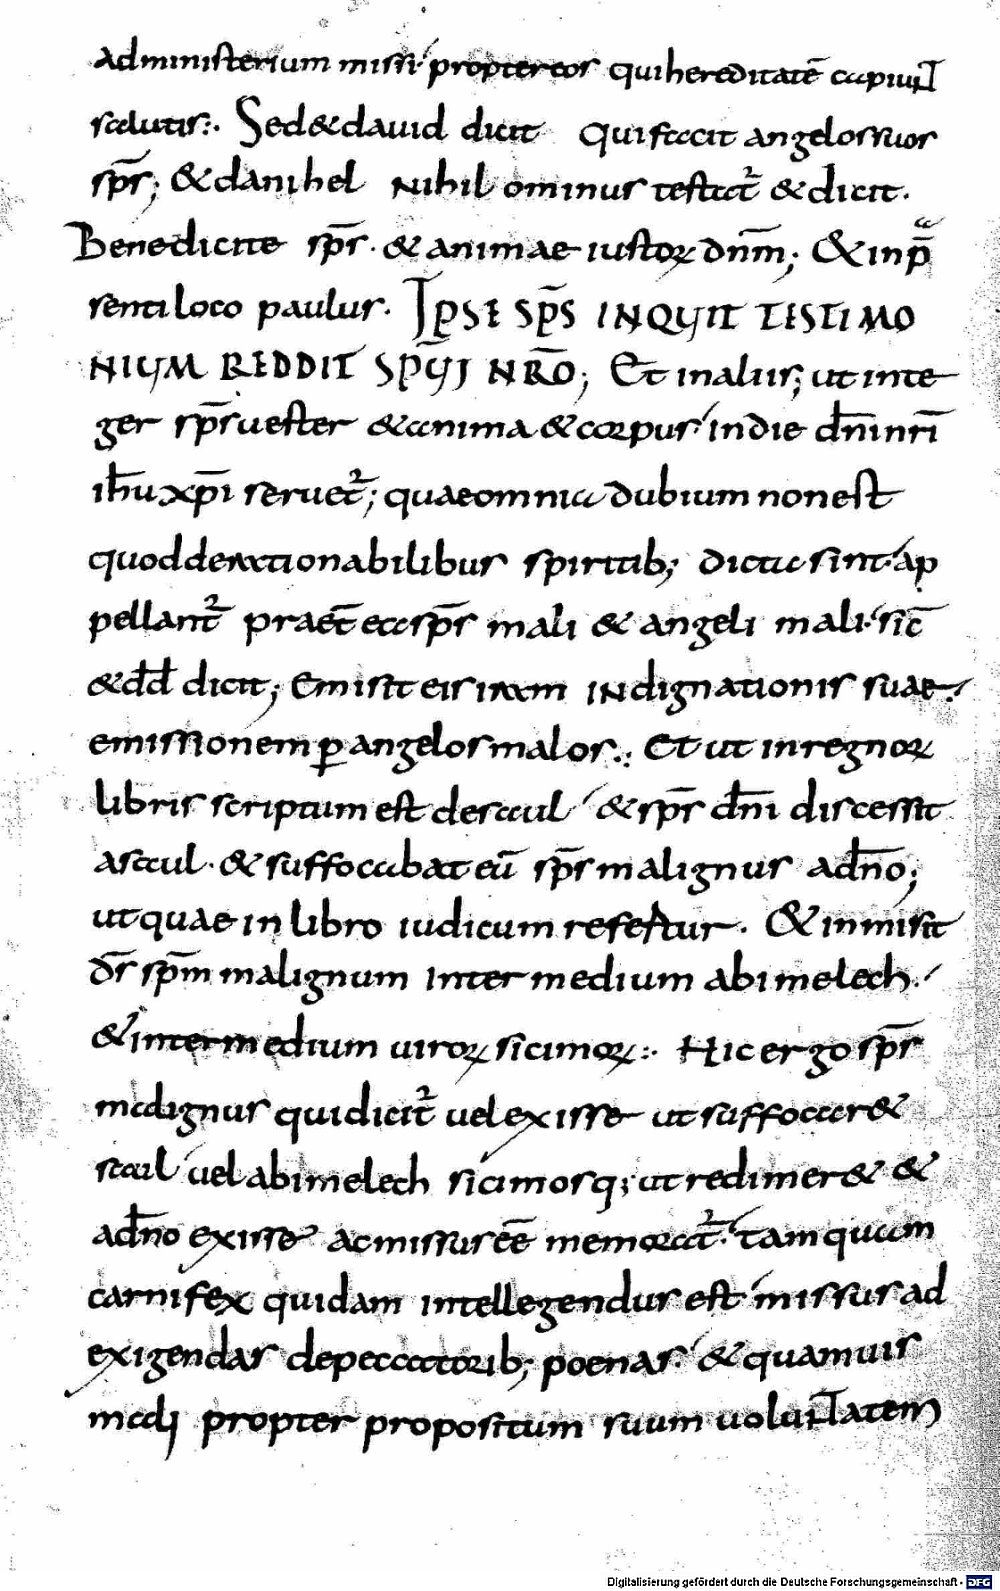 administerium missi propter eos qui hereditatē capiunt
salutis:. Sed & dauid dicit qui facit angelos suos
sp̄s; & danihel nihilominus testat̄ & dicit.
Benedicite sp̄s. & animae iustorꝝ dn̄m; & inp̄
senti loco paulus. IPSE SP̄S INQUIT TESTIMO
NIUM REDDIT SPŪI NR̄O; Et in aliis; ut inte
ger sp̄s uester & anima & corpus in die dn̄i nr̄i
ih̄u xp̄i seruet̄; quae omnia dubium non est
quod de rationabilibus spiritib; dicta sint ap
pellant̄ praet̄ea sp̄s mali & angeli mali. sic̄
& dd̄ dicit; Emisit eis iram indignationis suae.
emissionem ꝑ angelos malos.; Et ut in regnorꝝ
libris scriptum est de saul & sp̄s dn̄i discessit
a saul. & suffocabat eū sp̄s malignus a dn̄o;
ut quae in libro iudicum refertur. & inmisit
ds̄ sp̄m malignum inter medium abimelech.
& inter medium uirorꝝ sicimorꝝ:. Hic ergo sp̄s
malignus qui dicit̄ uel exisse ut suffocar&
saul uel abimelech sicimosq; ut redimer& &
a dn̄o exisse ac missus eē memorat̄. tam quam
carnifex quidam intellegendus est missus ad
exigendas de peccatorib; poenas. & quamuis
mali propter propositum suum uoluntatem